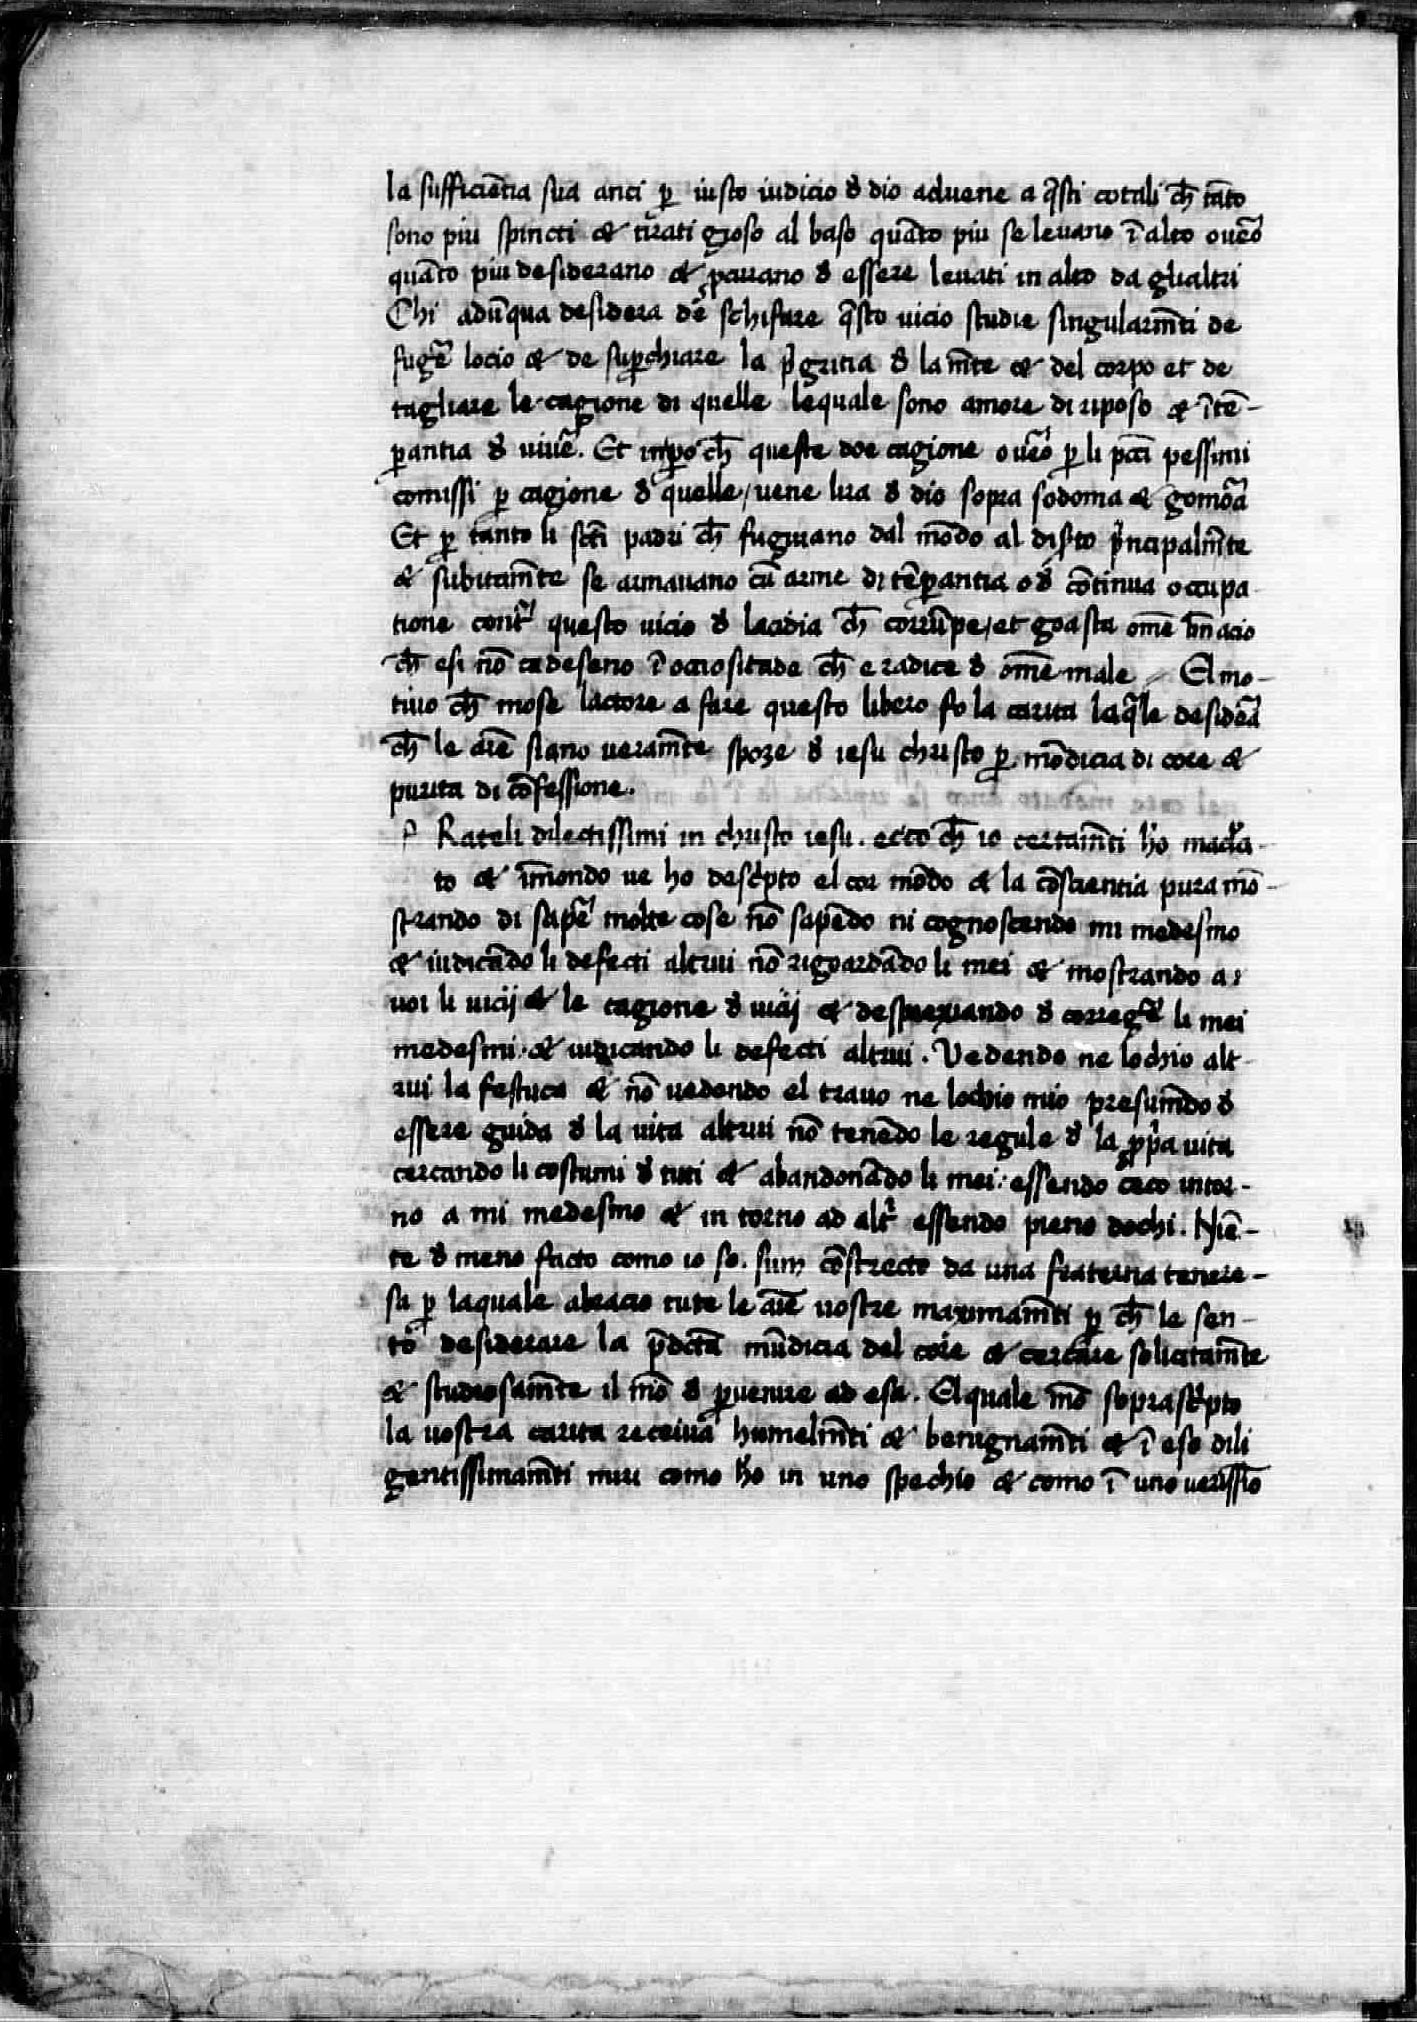 la sufficiẽtia sua anci ꝑ iusto iudicio đ dio aduene a q̃sti cotali ch̃ tãto
sono piu spincti & tirati gioso al baso quãto piu se leuano ĩ alto ouẽo
quãto piu desiderano & ꝓcurano đ essere leuati in alto da glialtri
Chi adũqua desidera dẽ schifare q̃sto uicio studie singularm̃ti de
fugẽ locio & de suꝑchiare la p̃gritia đ la m̃te & del corpo et de
tagliare le cagione di quelle lequale sono amore di riposo & ĩtẽ-
ꝑantia đ uiuẽ. Et inꝑo ch̃ queste doe cagione ouẽo ꝑ li pccĩ pessimi
comissi ꝑ cagione đ quelle / uene lira đ dio sopra sodoma & gomõa
Et ꝑ tanto li sctĩ padri ch̃ fugiuano dal mõdo al disto p̃ncipalm̃te
& subitam̃te se armauano cũ arme di tẽꝑantia o đ cõtinua occupa
tione cont̃ questo uicio đ lacidia ch̃ corrũpe / et goasta om̃e b̃n acio
ch̃ esi nõ cadeseno ĩ ociositade ch̃ e radice đ om̃e male El mo-
tiuo ch̃ mose lactore a fare questo libero fo la carita laq̃le desidẽa
ch̃ le aĩe siano ueram̃te spoze đ iesu christo ꝑ mõdicia di core &
purita di cõfessione.
F Rateli dilectissimi in christo iesu. ecco ch̃ io certam̃ti ho macla-
to & ĩmondo ue ho desc̃pto el cor mõdo & la cõscientia pura mõ-
strando di sapẽ molte cose nõ sapẽdo ni cognoscendo mi medesmo
& iudicãdo li defecti altrui nõ rigoardãdo li mei & mostrando a
uoi li uicij & le cagione đ uicij & despregiando đ corregẽ li mei
medesmi & iudicando li defecti altrui. Vedendo ne lochio alt-
rui la festuca & nõ uedendo el trauo ne lochio mio presum̃do đ
essere guida đ la uita altrui nõ tenẽdo le regule đ la ꝓp̃a uita
cercando li costumi đ tuti & abandonãdo li mei: essendo ceco intor-
no a mi medesmo & in torno ad alt̃ essendo pieno dochi. Niẽ-
te đ meno facto como io so. sum cõstrecto da una fraterna tenere-
sa ꝑ laquale abracio tute le aĩe uostre maximam̃ti ꝑ ch̃ le sen-
to desiderare la p̃dctã mũdicia del core & cercare solicitam̃te
& studiosam̃te il mõ đ ꝑuenire ad esa. Elquale mõ soprasc̃pto
la uostra carita receiua humelm̃ti & benignam̃ti & ĩ eso dili
gentissimam̃ti miri como ho in uno spechio & como ĩ uno uerissĩo